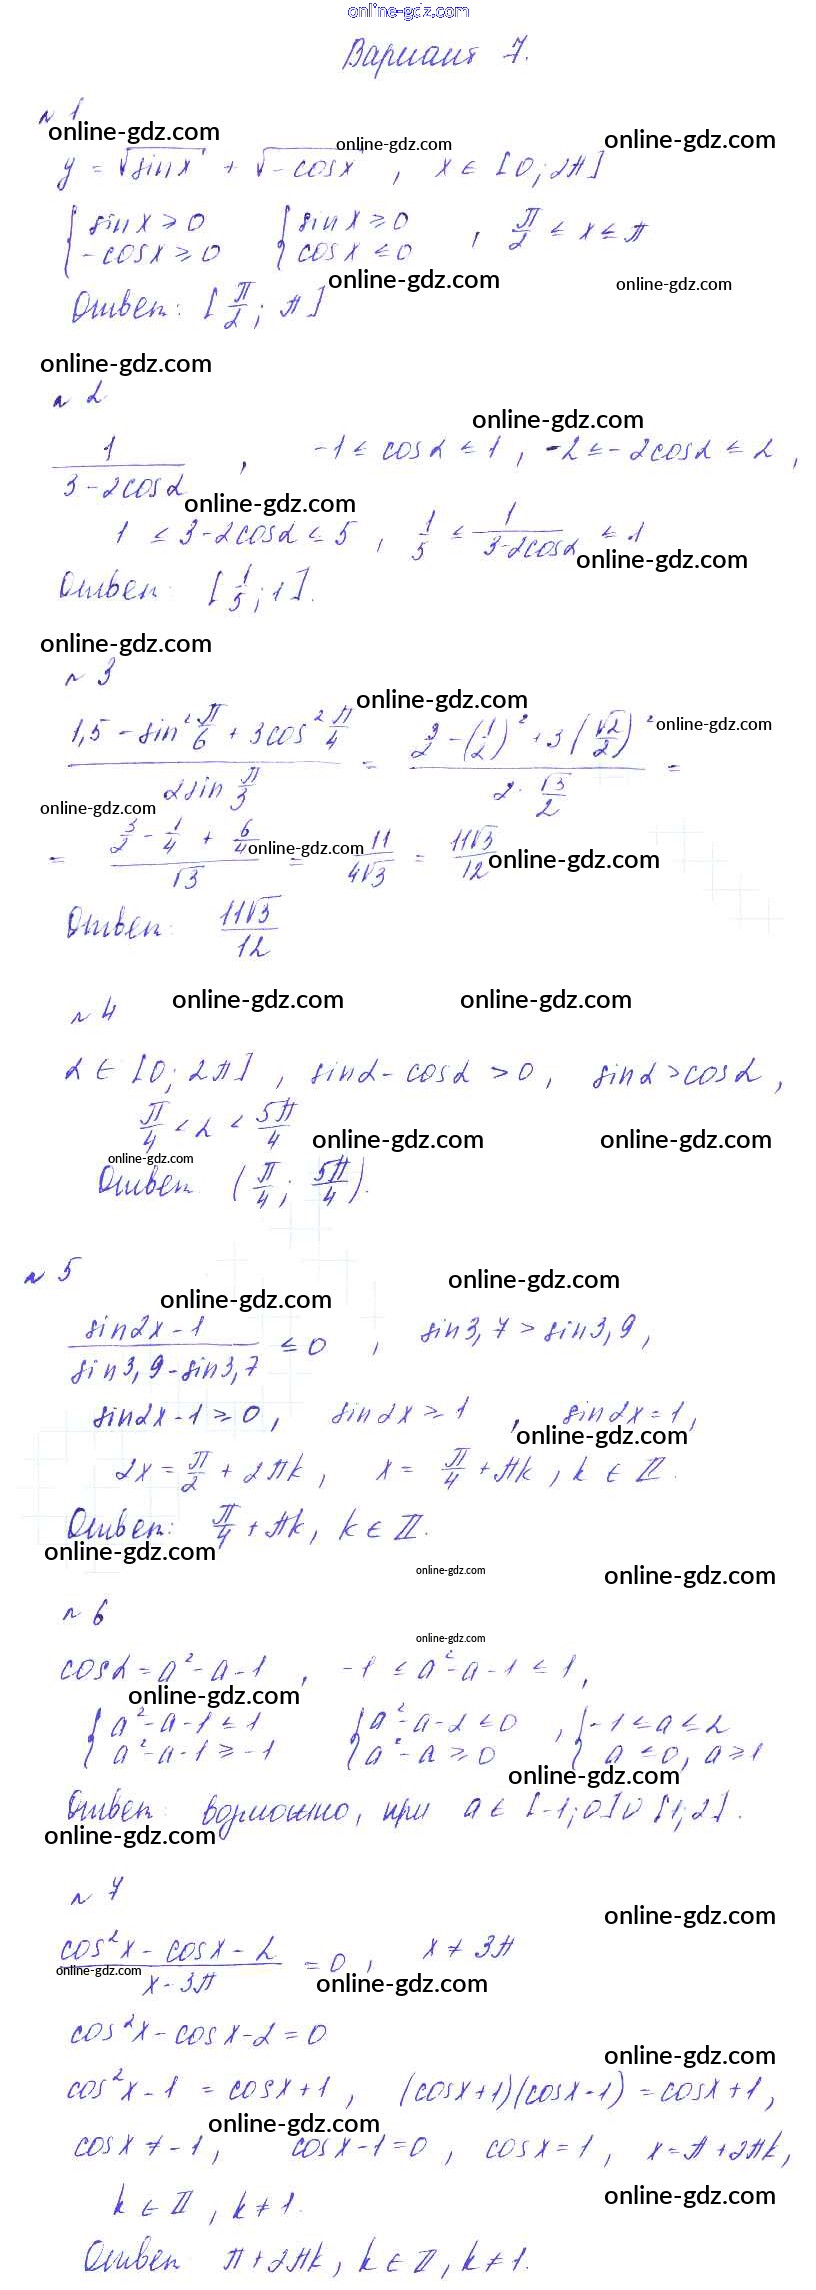 online-gdz.com
Вариант 7.
№ 1
online-gdz.com online-gdz.com online-gdz.com
y = √sinx + √-cosx , x ∈ [0; 2π]
{ sinx ≥ 0 { sinx ≥ 0 , π/2 ≤ x ≤ π
{ -cosx ≥ 0 { cosx ≤ 0
online-gdz.com online-gdz.com
Ответ: [π/2; π]
online-gdz.com
№ 2
online-gdz.com
1/(3-2cosα) , -1 ≤ cosα ≤ 1 , -2 ≤ -2cosα ≤ 2 ,
online-gdz.com
1 ≤ 3-2cosα ≤ 5 , 1/5 ≤ 1/(3-2cosα) ≤ 1
online-gdz.com
Ответ: [1/5; 1].
online-gdz.com
№ 3
online-gdz.com online-gdz.com
(1,5 - sin² π/6 + 3cos² π/4)/(2sin π/3) = (3/2 - (1/2)² + 3(√2/2)²)/(2·√3/2) =
online-gdz.com
= (3/2 - 1/4 + 6/4)/√3 = 11/(4√3) = 11√3/12
online-gdz.com online-gdz.com
Ответ: 11√3/12
№ 4
online-gdz.com online-gdz.com
α ∈ [0; 2π] , sinα - cosα > 0 , sinα > cosα ,
π/4 < α < 5π/4
online-gdz.com online-gdz.com online-gdz.com
Ответ: (π/4; 5π/4).
№ 5
online-gdz.com online-gdz.com
(sin2x - 1)/(sin3,9 - sin3,7) ≤ 0 , sin3,7 > sin3,9 ,
sin2x - 1 ≥ 0 , sin2x ≥ 1 , sin2x = 1 ,
online-gdz.com
2x = π/2 + 2πk , x = π/4 + πk , k ∈ Z.
Ответ: π/4 + πk , k ∈ Z.
online-gdz.com online-gdz.com online-gdz.com
№ 6
online-gdz.com
cosα = a² - a - 1 , -1 ≤ a² - a - 1 ≤ 1 ,
online-gdz.com
{ a² - a - 1 ≤ 1 { a² - a - 2 ≤ 0 , { -1 ≤ a ≤ 2
{ a² - a - 1 ≥ -1 { a² - a ≥ 0 { a ≤ 0, a ≥ 1
online-gdz.com
Ответ: возможно, при a ∈ [-1; 0] U [1; 2].
online-gdz.com
№ 7
online-gdz.com
(cos²x - cosx - 2)/(x - 3π) = 0 , x ≠ 3π
online-gdz.com online-gdz.com
cos²x - cosx - 2 = 0
online-gdz.com
cos²x - 1 = cosx + 1 , (cosx + 1)(cosx - 1) = cosx + 1 ,
online-gdz.com
cosx ≠ -1 , cosx - 1 = 0 , cosx = 1 , x = π + 2πk ,
k ∈ Z , k ≠ 1.
online-gdz.com
Ответ: π + 2πk , k ∈ Z , k ≠ 1.